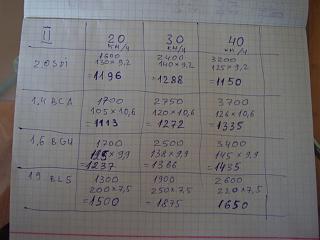 II 20 30 40
км/ч км/ч км/ч
2.0 SDI 1600 2400 3200
130×9,2 140×9,2 125×9,2
=1196 =1288 =1150
1,4 BCA 1700 2750 3700
105×10,6 120×10,6 126×10,6
=1113 =1272 =1335
1,6 BGU 1700 2500 3400
125×9,9 138×9,9 145×9,9
=1237 =1366 =1435
1.9 BLS 1300 1900 2600
200×7,5 250×7,5 220×7,5
=1500 =1875 1650